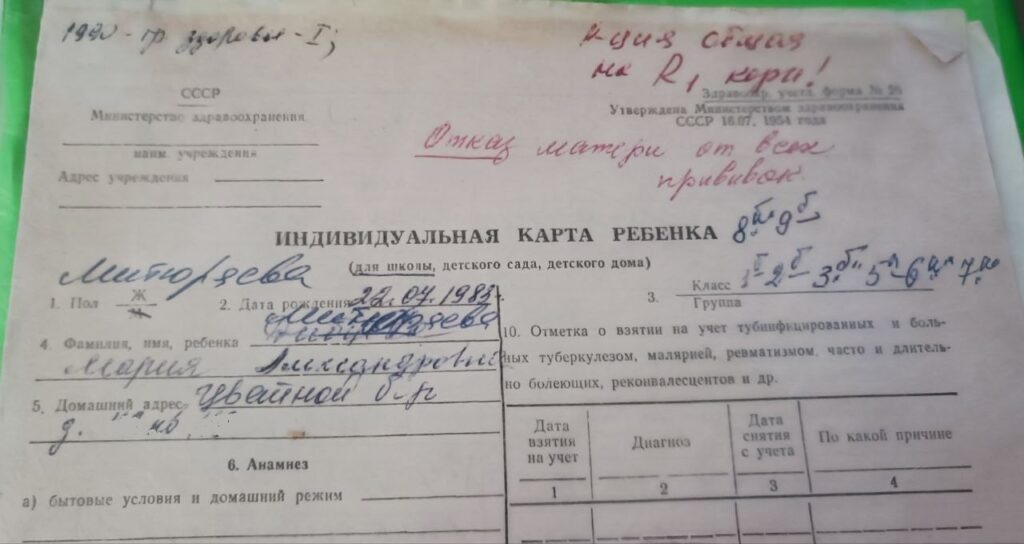 1990 - гр. здоровья - I;
на R, кори!
СССР
Министерство здравоохранения
наим. учреждения
Адрес учреждения
Здравоохр. учетн. форма № 26
Утверждена Министерством здравоохранения
СССР 16.07. 1954 года
Отказ матери от всех
прививок
ИНДИВИДУАЛЬНАЯ КАРТА РЕБЕНКА 8б 9б
(для школы, детского сада, детского дома)
1. Пол Ж
2. Дата рождения 22.07.1983
3. Класс
Группа
4. Фамилия, имя, ребенка
Мария Александровна
5. Домашний адрес Цветной б-р
д.
6. Анамнез
а) бытовые условия и домашний режим
10. Отметка о взятии на учет тубинфицированных и боль-
ных туберкулезом, малярией, ревматизмом, часто и длитель-
но болеющих, реконвалесцентов и др.
Дата взятия на учет
Диагноз
Дата снятия с учета
По какой причине
1 2 3 4